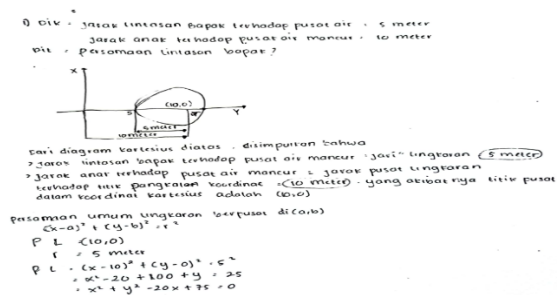 1) Dik : Jarak lintasan Bapak terhadap pusat air = 5 meter
Jarak anak terhadap pusat air mancur = 10 meter
Dit = Persamaan Lintasan bapak?
X
(10,0)
5
Y
5 meter
10 meter
Dari diagram kartesius diatas, disimpulkan bahwa
> Jarak lintasan bapak terhadap pusat air mancur = jari" lingkaran (5 meter)
> Jarak anak terhadap pusat air mancur = jarak pusat lingkaran
terhadap titik pangkalan koordinat = (10 meter). yang akibatnya titik pusat
dalam koordinat kartesius adalah (10,0)
Persamaan umum lingkaran berpusat di (a,b)
(x-a)² + (y-b)² = r²
P L = (10,0)
r = 5 meter
P L = (x-10)² + (y-0)² = 5²
= x² - 20 + 100 + y = 25
= x² + y² - 20x + 75 = 0